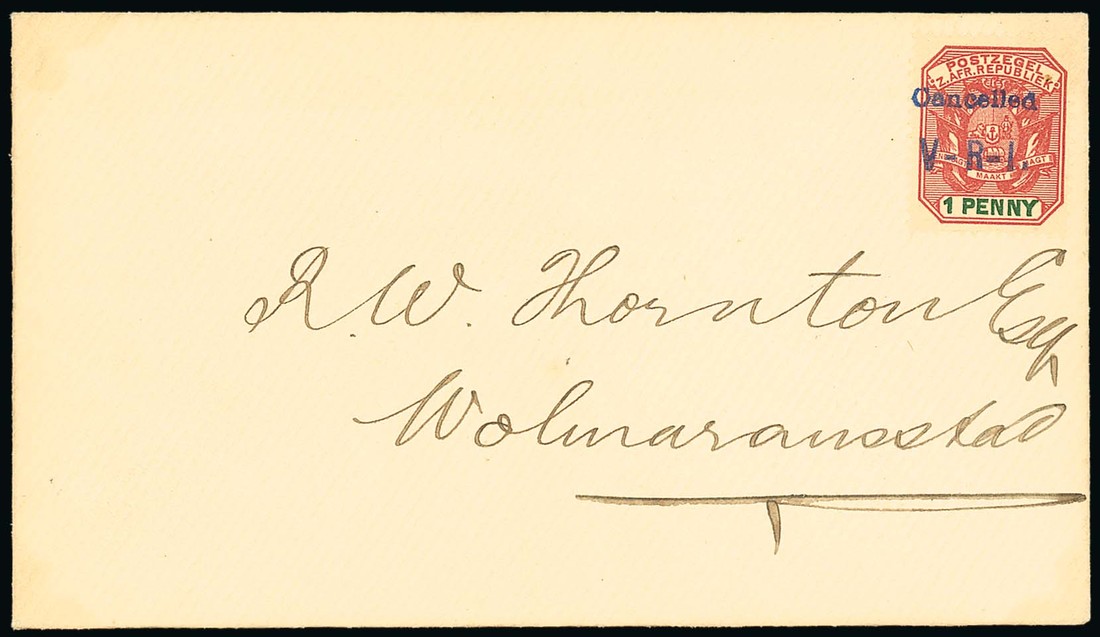 POSTZEGEL
Z. AFR. REPUBLIEK
Cancelled
V-R-I.
MAAKT
1 PENNY
R. W. Thornton Esq
Wolmaransstad